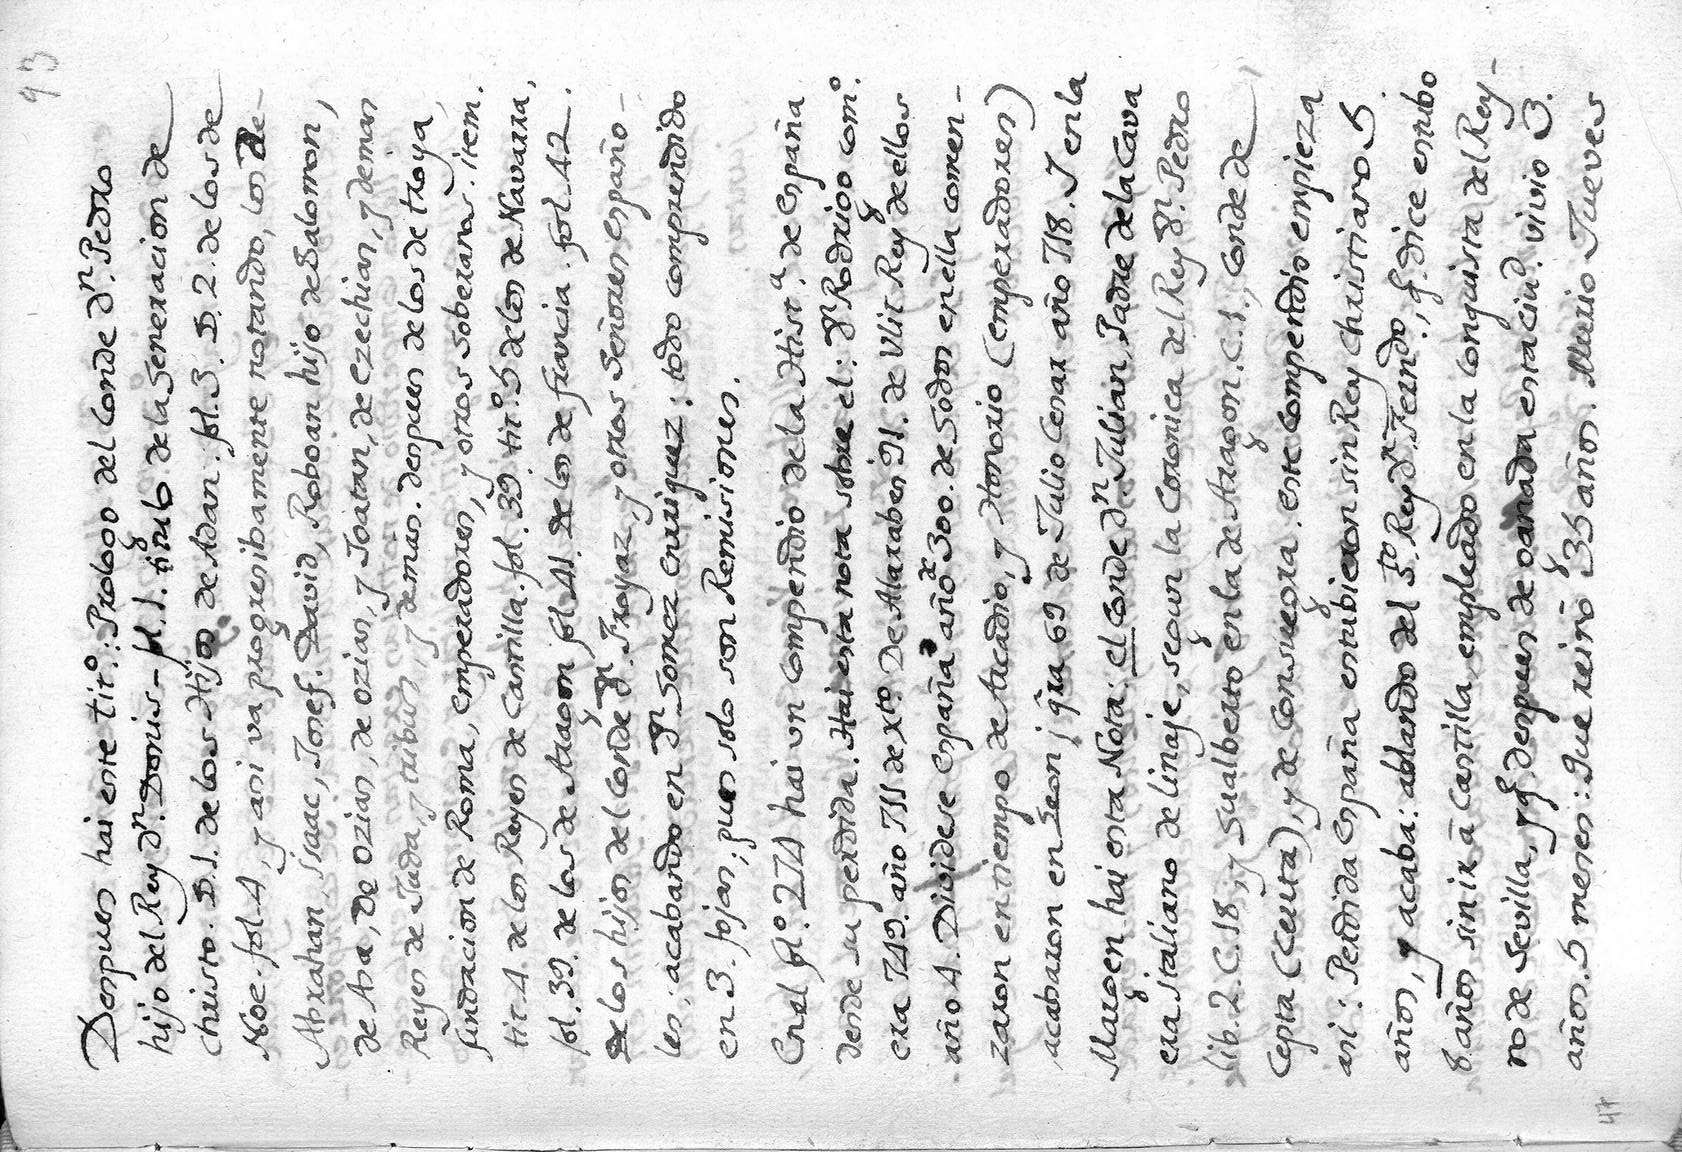 93
Despues hai este titº: Prologo del Conde Dⁿ. Pedro
hijo del Rey Dⁿ. Donis – fol. 1. titulo de la Generacion de
Christo. §. 1. de los Hijos de Adan. fol. 3. §. 2. de los de
Noe. fol. 4, y asi va progresibamente notando, los de
Abrahan, Isaac, Josef. David, Roboan hijo de Salomon,
de Asa, de Ozias, de Ozias, y Joatan, de Ezechias, y demas
Reyes de Juda, y tribus, y demas. despues de los de troya,
fundacion de Roma, Emperadores, y otros soberanos. item.
tit. 4. de los Reyes de Castilla. fol. 39. titº. 5 de los de Navarra,
fol. 39. de los de Aragon fol. 41. de los de francia. fol. 42.
de los hijos del Conde Dⁿ. Froyaz, y otros Señores españo-
les, acabando en Dⁿ. Gomez Enriquez. todo comprendido
en 3. fojas; pues solo son Remisiones.
En el folº. 274 hai un Compendio de la Histª. de España
desde su perdida. Hai esta nota sobre el: Dⁿ Rodrigo comº.
era 749. año 711 de Xtº. De Alarabes 91. de Ulit Rey de ellos
año 4. Dividese España año de 300. de Godos en ella comen-
zaron en tiempo de Arcadio, y Honorio (Emperadores)
acabaron en Seon; qᵉ ra 69 de Julio Cesar año 718. I en la
Margen hai esta Nota: el Conde Dⁿ. Julian, Padre de la Cava
era Italiano de linaje, segun la Coronica del Rey Dⁿ. Pedro
lib. 2. C. 18, y Gualberto en la de Aragon. C. 1., Conde de
Cepta (Ceuta), y de Consuegra. este Compendio empieza
asi: Perdida España estubieron sin Rey Christiano 5
años, y acaba: ablando del Sᵗᵒ. Rey Dⁿ. Ferndo, qᵉ. dice estubo
8 años sin ir â Castilla, empleado en la Conquista del Rey-
no de Sevilla, y qᵉ. despues de ganada esta ciud. vivio 3.
años. 5 meses: Que reinô 35 años. Murio Jueves
47